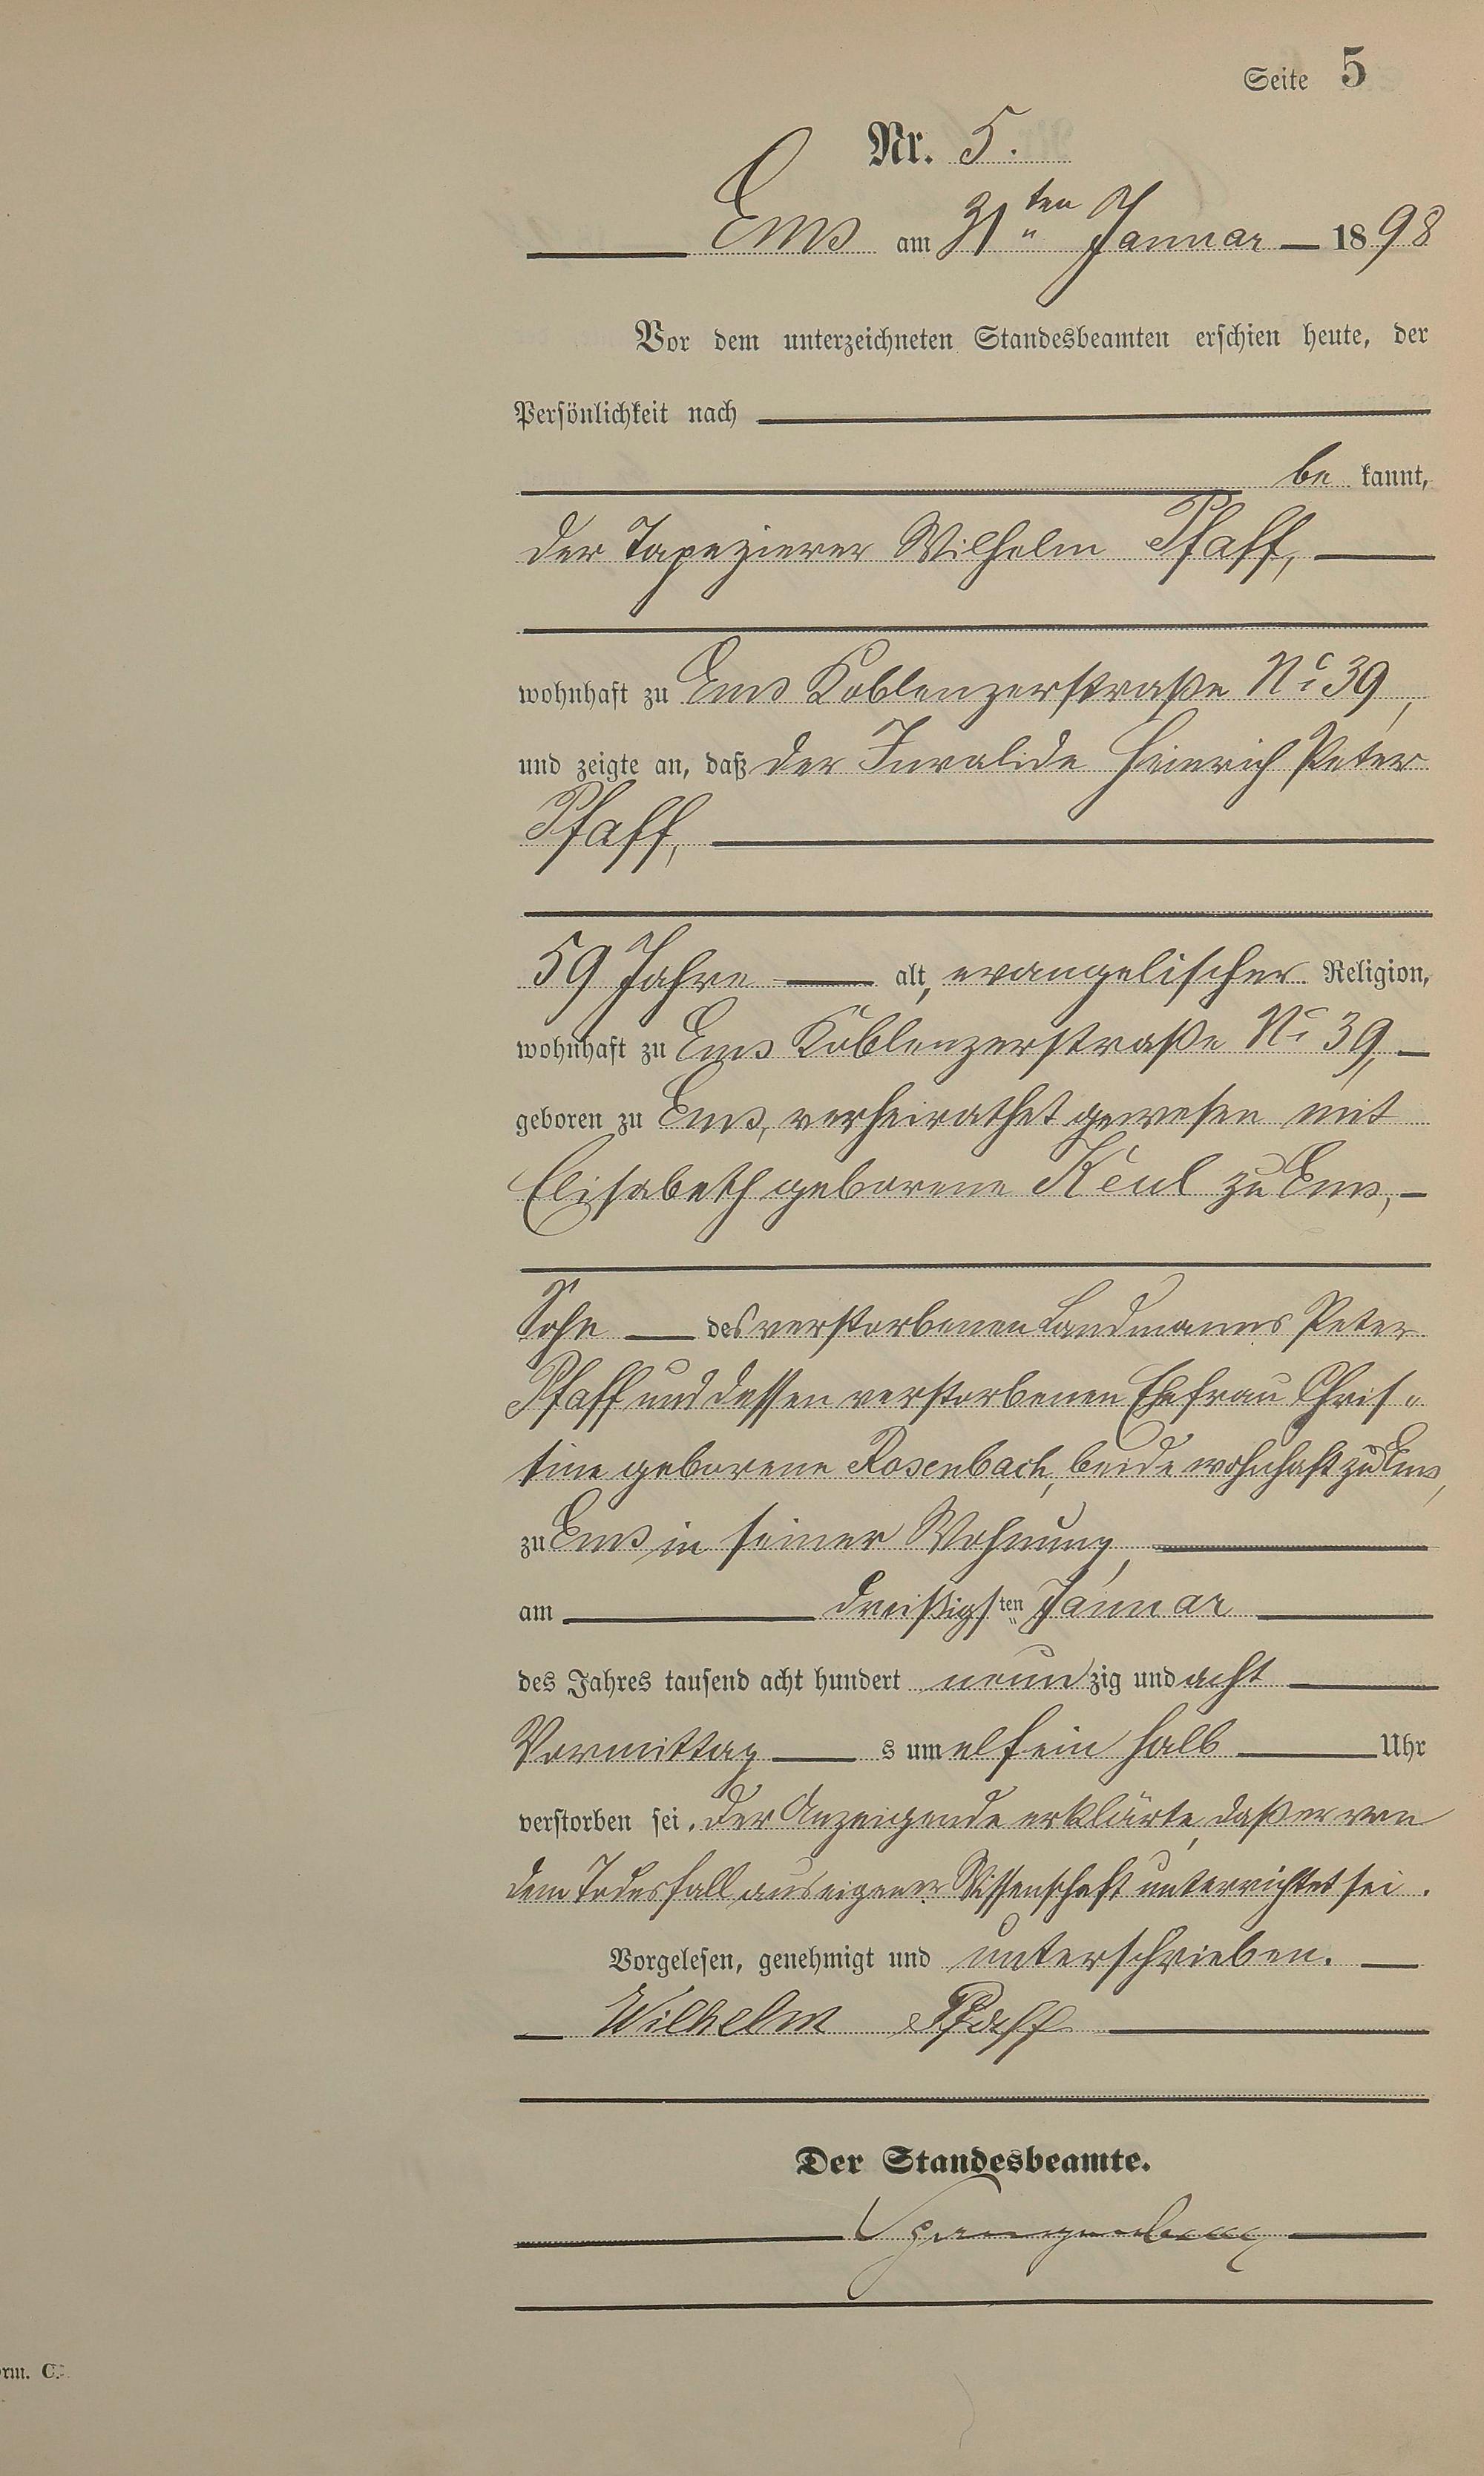 Seite 5
Nr. 5.
Ems am 31ten Januar 1898
Vor dem unterzeichneten Standesbeamten erschien heute, der
Persönlichkeit nach
be kannt,
der Tapezierer Wilhelm Pfaff,
wohnhaft zu Ems Koblenzerstraße No 39,
und zeigte an, daß der Invalide Heinrich Peter
Pfaff,
59 Jahre alt, evangelischer Religion,
wohnhaft zu Ems Koblenzerstraße No 39,
geboren zu Ems, verheirathet gewesen mit
Elisabeth geborene Keul zu Ems,
Sohn des verstorbenen Landmanns Peter
Pfaff und dessen verstorbenen Ehefrau Chris„
tine geborene Rosenbach, beide wohnhaft zu Ems,
zu Ems in seiner Wohnung,
am dreißigsten Januar
des Jahres tausend acht hundert neunzig und acht
Vormittags um elf ein halb Uhr
verstorben sei. Der Anzeigende erklärte, daß er von
dem Todesfall aus eigener Wissenschaft unterrichtet sei.
Vorgelesen, genehmigt und unterschrieben.
Wilhelm Pfaff
Der Standesbeamte.
orm. C.